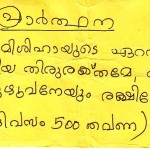 പ്രാർത്ഥന
മിശിഹായുടെ ഏറ
തിരുരക്തമേ,
മുഴുവനേയും രക്ഷി
ദിവസം 500 തവണ)